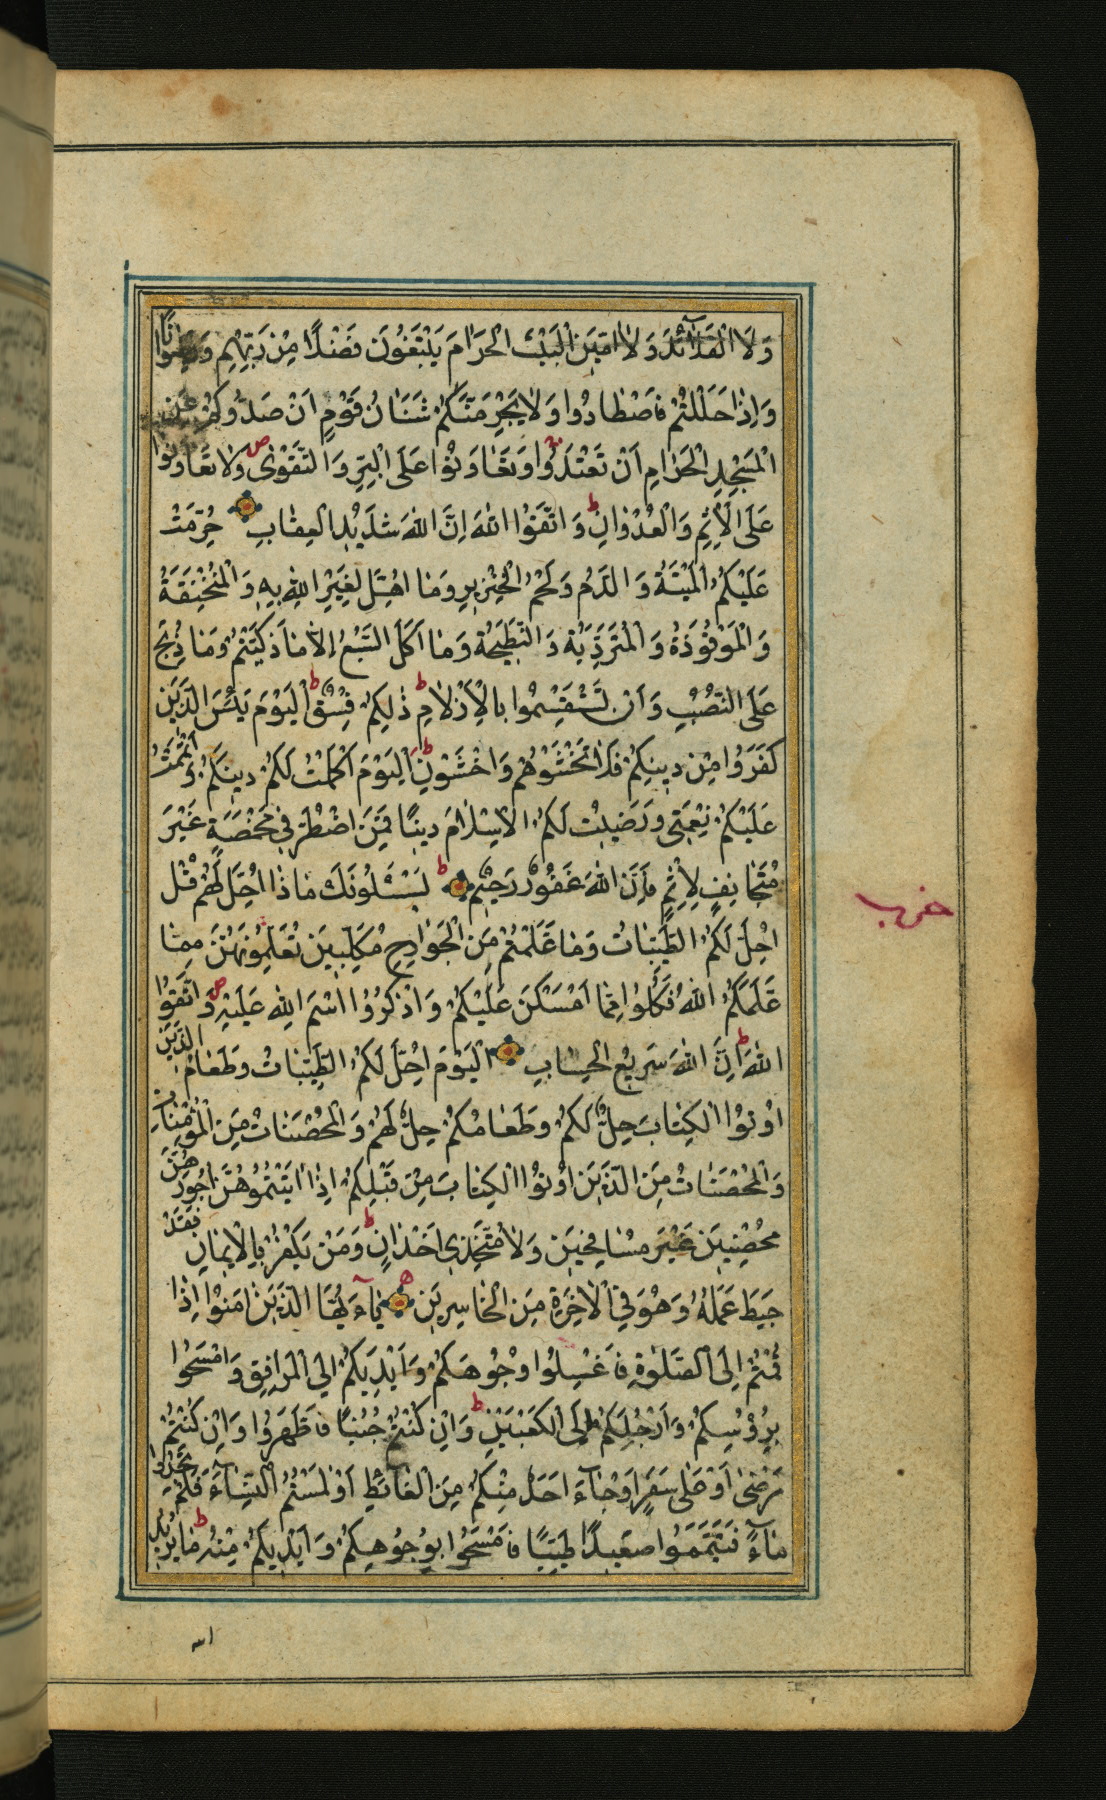 وَلَا الْقَلَآئِدَ وَلَا اٰمّينَ الْبَيْتَ الْحَرَامَ يَبْتَغُونَ فَضْلًا مِنْ رَبِّهِمْ وَرِضْوَانًا
وَاِذَا حَلَلْتُمْ فَاصْطَادُوا وَلَا يَجْرِمَنَّكُمْ شَنَاٰنُ قَوْمٍ اَنْ صَدُّوكُمْ عَنِ
الْمَسْجِدِ الْحَرَامِ اَنْ تَعْتَدُوا وَتَعَاوَنُوا عَلَى الْبِرِّ وَالتَّقْوٰى ص وَلَا تَعَاوَنُوا
عَلَى الْاِثْمِ وَالْعُدْوَانِ ط وَاتَّقُوا اللهَ اِنَّ اللهَ شَدِيدُ الْعِقَابِ حُرِّمَتْ
عَلَيْكُمُ الْمَيْتَةُ وَالدَّمُ وَلَحْمُ الْخِنْزِيرِ وَمَا اُهِلَّ لِغَيْرِ اللهِ بِهِ وَالْمُنْخَنِقَةُ
وَالْمَوْقُوذَةُ وَالْمُتَرَدِّيَةُ وَالنَّطِيحَةُ وَمَا اَكَلَ السَّبُعُ اِلَّا مَا ذَكَّيْتُمْ وَمَا ذُبِحَ
عَلَى النُّصُبِ وَاَنْ تَسْتَقْسِمُوا بِالْاَزْلَامِ ط ذٰلِكُمْ فِسْقٌ ط اَلْيَوْمَ يَئِسَ الَّذِينَ
كَفَرُوا مِنْ دِينِكُمْ فَلَا تَخْشَوْهُمْ وَاخْشَوْنِ ط اَلْيَوْمَ اَكْمَلْتُ لَكُمْ دِينَكُمْ وَاَتْمَمْتُ
عَلَيْكُمْ نِعْمَتِي وَرَضِيتُ لَكُمُ الْاِسْلَامَ دِينًا فَمَنِ اضْطُرَّ فِي مَخْمَصَةٍ غَيْرَ
مُتَجَانِفٍ لِاِثْمٍ فَاِنَّ اللهَ غَفُورٌ رَحِيمٌ ط يَسْئَلُونَكَ مَاذَا اُحِلَّ لَهُمْ قُلْ
حزب
اُحِلَّ لَكُمُ الطَّيِّبَاتُ وَمَا عَلَّمْتُمْ مِنَ الْجَوَارِحِ مُكَلِّبِينَ تُعَلِّمُونَهُنَّ مِمَّا
عَلَّمَكُمُ اللهُ فَكُلُوا مِمَّا اَمْسَكْنَ عَلَيْكُمْ وَاذْكُرُوا اسْمَ اللهِ عَلَيْهِ ص وَاتَّقُوا
اللهَ ط اِنَّ اللهَ سَرِيعُ الْحِسَابِ اَلْيَوْمَ اُحِلَّ لَكُمُ الطَّيِّبَاتُ وَطَعَامُ الَّذِينَ
اُوتُوا الْكِتَابَ حِلٌّ لَكُمْ وَطَعَامُكُمْ حِلٌّ لَهُمْ وَالْمُحْصَنَاتُ مِنَ الْمُؤْمِنَاتِ
وَالْمُحْصَنَاتُ مِنَ الَّذِينَ اُوتُوا الْكِتَابَ مِنْ قَبْلِكُمْ اِذَا اٰتَيْتُمُوهُنَّ اُجُورَهُنَّ
مُحْصِنِينَ غَيْرَ مُسَافِحِينَ وَلَا مُتَّخِذِي اَخْدَانٍ ط وَمَنْ يَكْفُرْ بِالْاِيمَانِ فَقَدْ
حَبِطَ عَمَلُهُ وَهُوَ فِي الْاٰخِرَةِ مِنَ الْخَاسِرِينَ يَآءَيُّهَا الَّذِينَ اٰمَنُوا اِذَا
قُمْتُمْ اِلَى الصَّلٰوةِ فَاغْسِلُوا وُجُوهَكُمْ وَاَيْدِيَكُمْ اِلَى الْمَرَافِقِ وَامْسَحُوا
بِرُؤُسِكُمْ وَاَرْجُلَكُمْ اِلَى الْكَعْبَيْنِ ط وَاِنْ كُنْتُمْ جُنُبًا فَاطَّهَّرُوا وَاِنْ كُنْتُمْ
مَرْضٰى اَوْ عَلٰى سَفَرٍ اَوْ جَآءَ اَحَدٌ مِنْكُمْ مِنَ الْغَآئِطِ اَوْ لٰمَسْتُمُ النِّسَآءَ فَلَمْ تَجِدُوا
مَآءً فَتَيَمَّمُوا صَعِيدًا طَيِّبًا فَامْسَحُوا بِوُجُوهِكُمْ وَاَيْدِيكُمْ مِنْهُ ط مَا يُرِيدُ